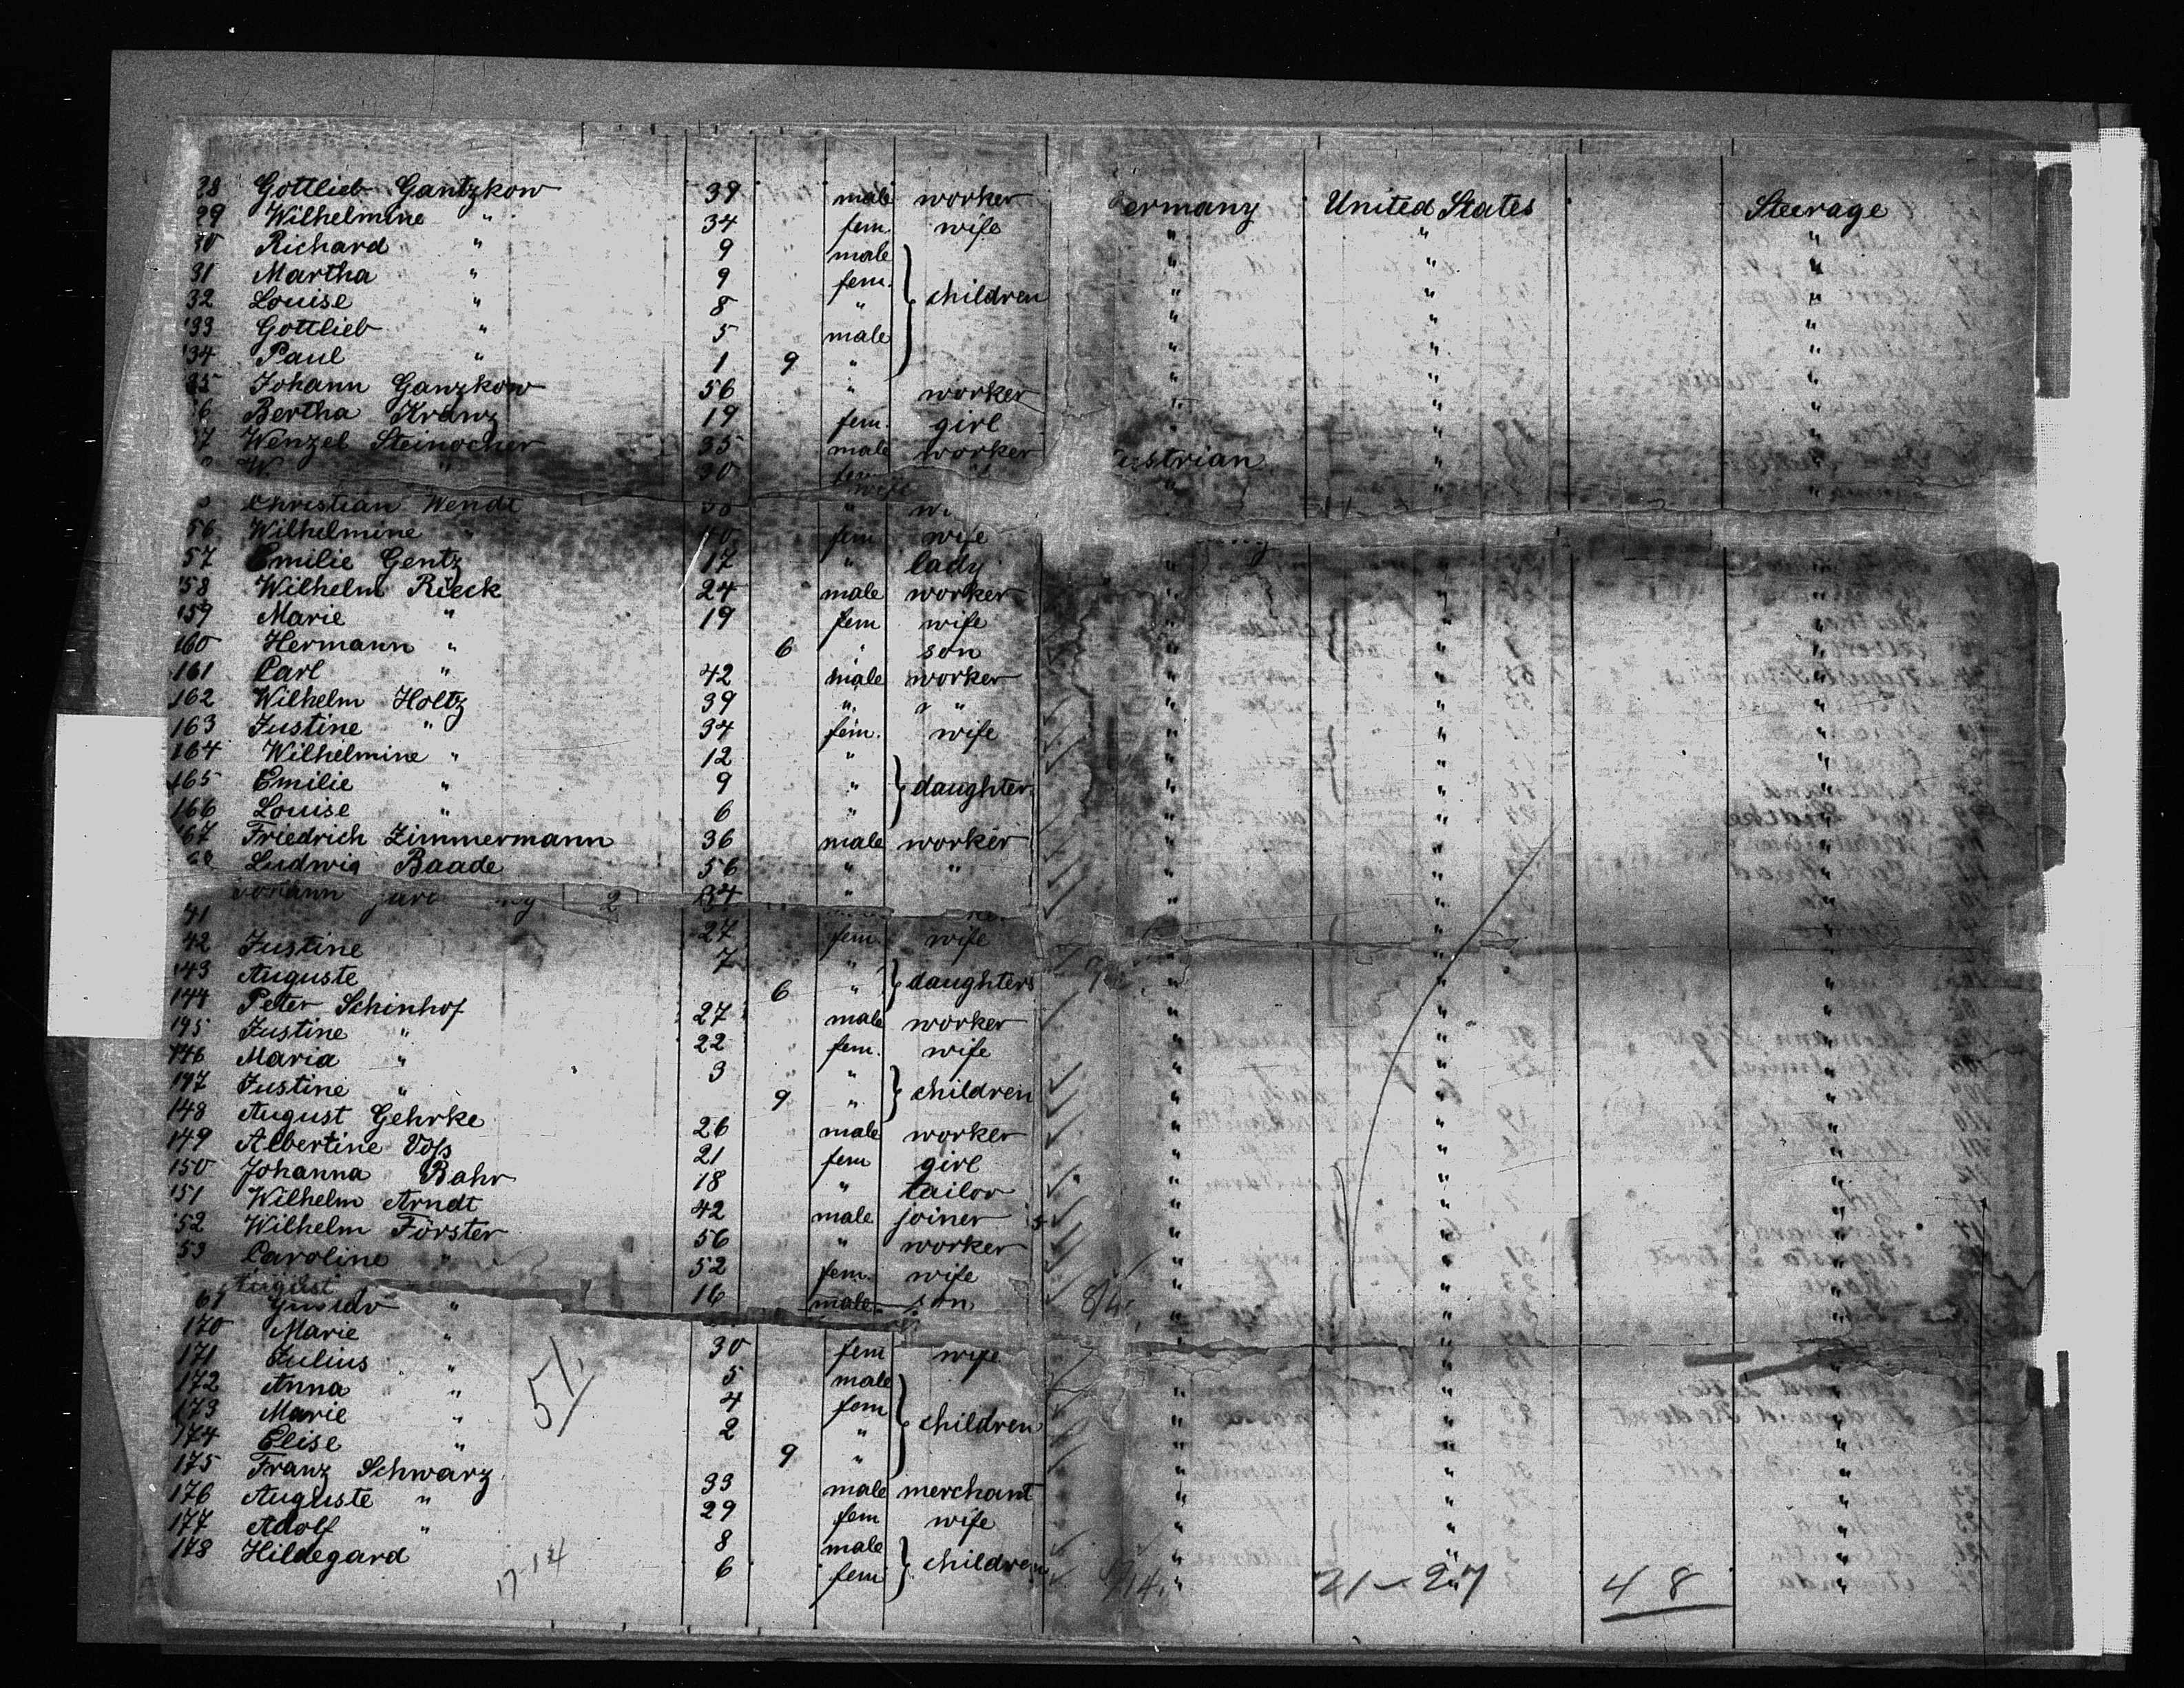 28 Gottlieb Gantzkow 39 male worker Germany United States Steerage
29 Wilhelmine " 34 fem. wife " " "
30 Richard " 9 male " " "
31 Martha " 9 fem. " " "
32 Louise " 8 " children " " "
133 Gottlieb " 5 male " " "
134 Paul " 1 9 " " " "
35 Johann Ganzkow 56 " worker " " "
6 Bertha Kranz 19 fem. girl " " "
37 Wenzel Steinocher 35 male worker Austrian " "
W " 30 fem wife " " "
Christian Wendt "
56 Wilhelmine " 40 fem wife
57 Emilie Gentz 17 " lady " "
158 Wilhelm Rieck 24 male worker " " "
159 Marie " 19 fem wife " " "
160 Hermann " 6 " son " " "
161 Carl " 42 male worker " " "
162 Wilhelm Holtz 39 " " " " "
163 Justine " 34 fem. wife " " "
164 Wilhelmine " 12 " " " "
165 Emilie " 9 " daughter " " "
166 Louise " 6 " " " "
167 Friedrich Zimmermann 36 male worker " " "
68 Ludwig Baade 56 " " " " "
41 Johann 34 "
42 Justine 27 fem. wife " "
143 Auguste 7 " daughters " " "
6 "
144 Peter Schinhof 27 male worker " " "
145 Justine " 22 fem. wife " " "
146 Maria " 3 " children " " "
147 Justine " 9 " " " "
148 August Gehrke 26 male worker " " "
149 Albertine Voss 21 fem girl " " "
150 Johanna Bahr 18 " tailor " " "
151 Wilhelm Arndt 42 male joiner " " "
152 Wilhelm Förster 56 " worker " " "
53 Caroline " 52 fem. wife " " "
August 16 male son 8/4. " "
Gustav "
170 Marie " 30 fem wife " "
171 Julius " 5 male " " "
172 Anna " 4 fem " " "
173 Marie " 2 " children " " "
174 Elise " 9 " " " "
175 Franz Schwarz 33 male merchant " " "
176 Auguste " 29 fem wife " " "
177 Adolf " 8 male " " "
178 Hildegard 6 fem children " "
51.
17-14
9/4. 21-27 48